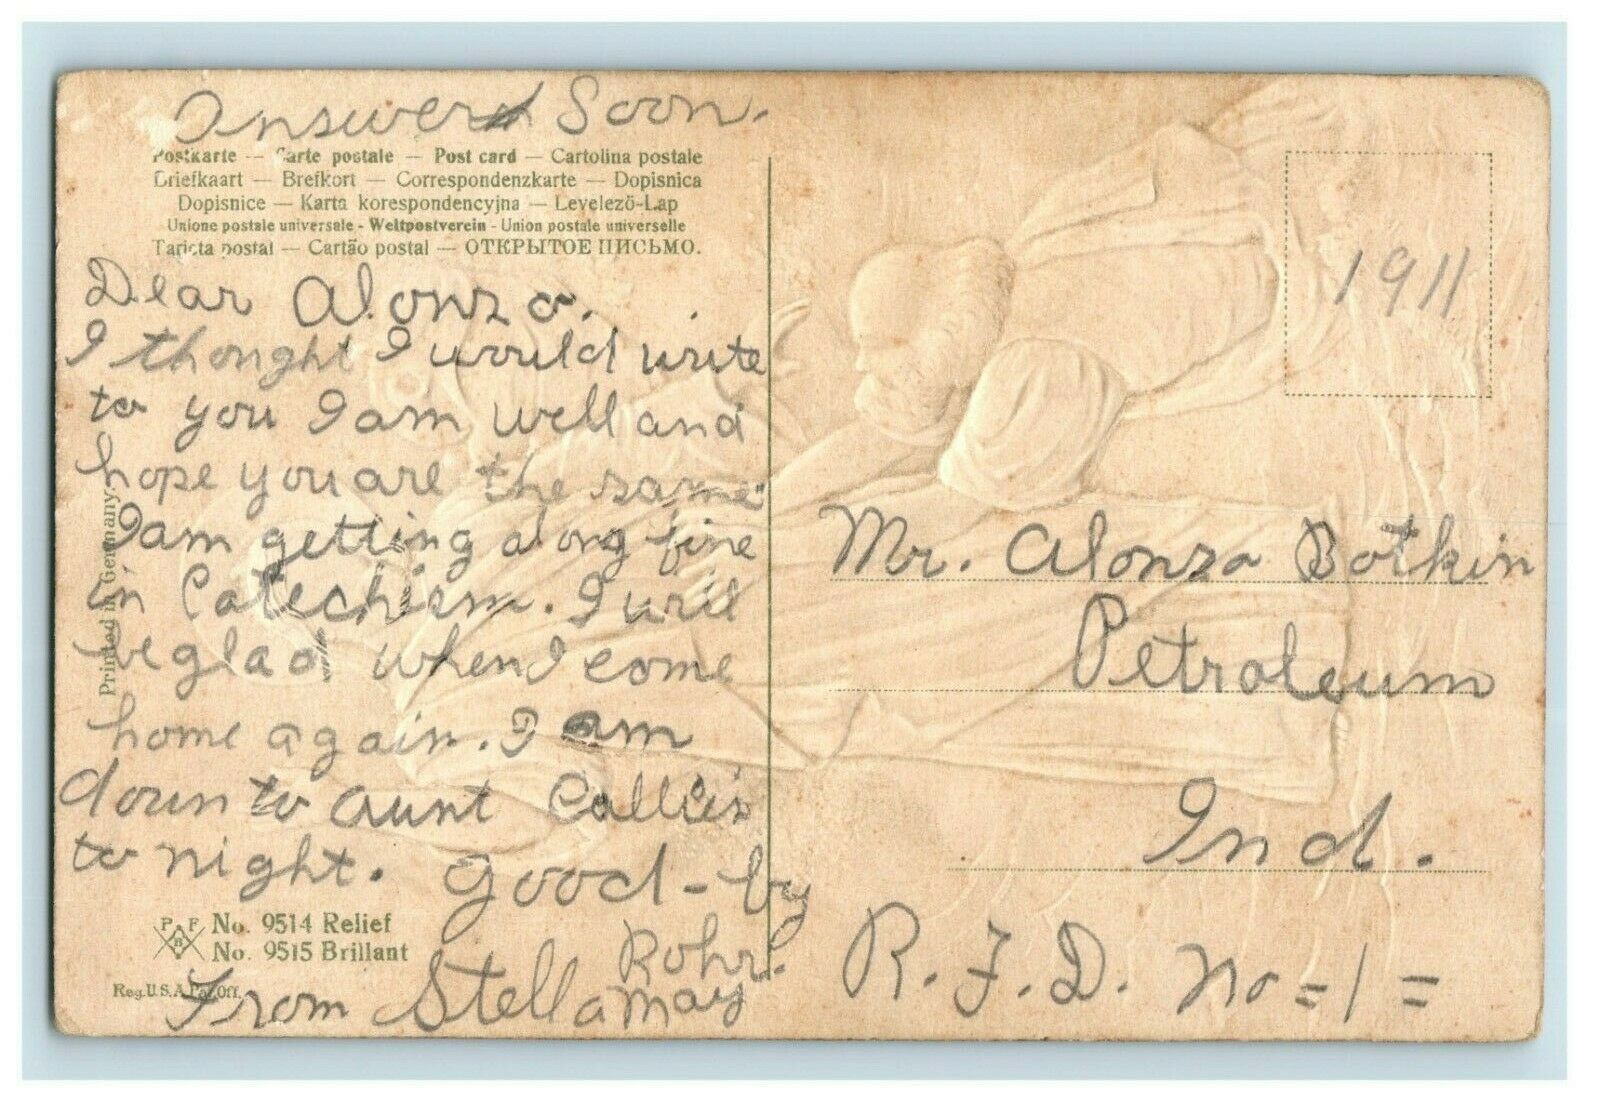 Answer Soon.
Postkarte — Carte postale — Post card — Cartolina postale
Briefkaart — Brefkort — Correspondenzkarte — Dopisnica
Dopisnice — Karta korespondencyjna — Levelezö-Lap
Unione postale universale - Weltpostverein - Union postale universelle
Tarjeta postal — Cartão postal — ОТКРЫТОЕ ПИСЬМО.
Dear Alonzo.
I thought I would write
to you I am well and
hope you are the same
I am getting along fine
in Catechism. I will
be glad when I come
home again. I am
down to aunt Callies
to night. Good-by
From Stella May Rohr.
Printed in Germany.
P F B No. 9514 Relief
No. 9515 Brillant
Reg. U.S.A Pat. Off.
1911
Mr. Alonzo Botkin
Petroleum
Ind.
R.F.D. No = 1 =